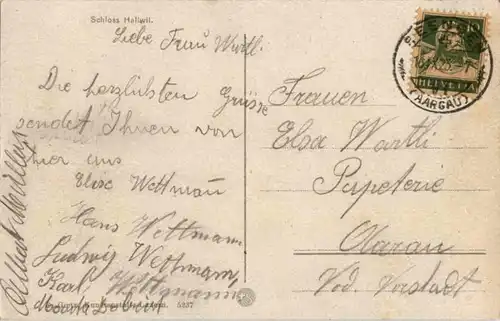 Schloss Hallwil.
Liebe Frau Wartli.
Die herzlichsten Grüsse
sendet Ihnen von
hier aus
Elise Wettmau
Hans Wettmann
Ludwig Wettmann,
Karl Wettmann
5237
HELVETIA
10
(AARGAU)
Frauen
Elsa Wartli
Papeterie
Aarau
Vod. Vorstadt